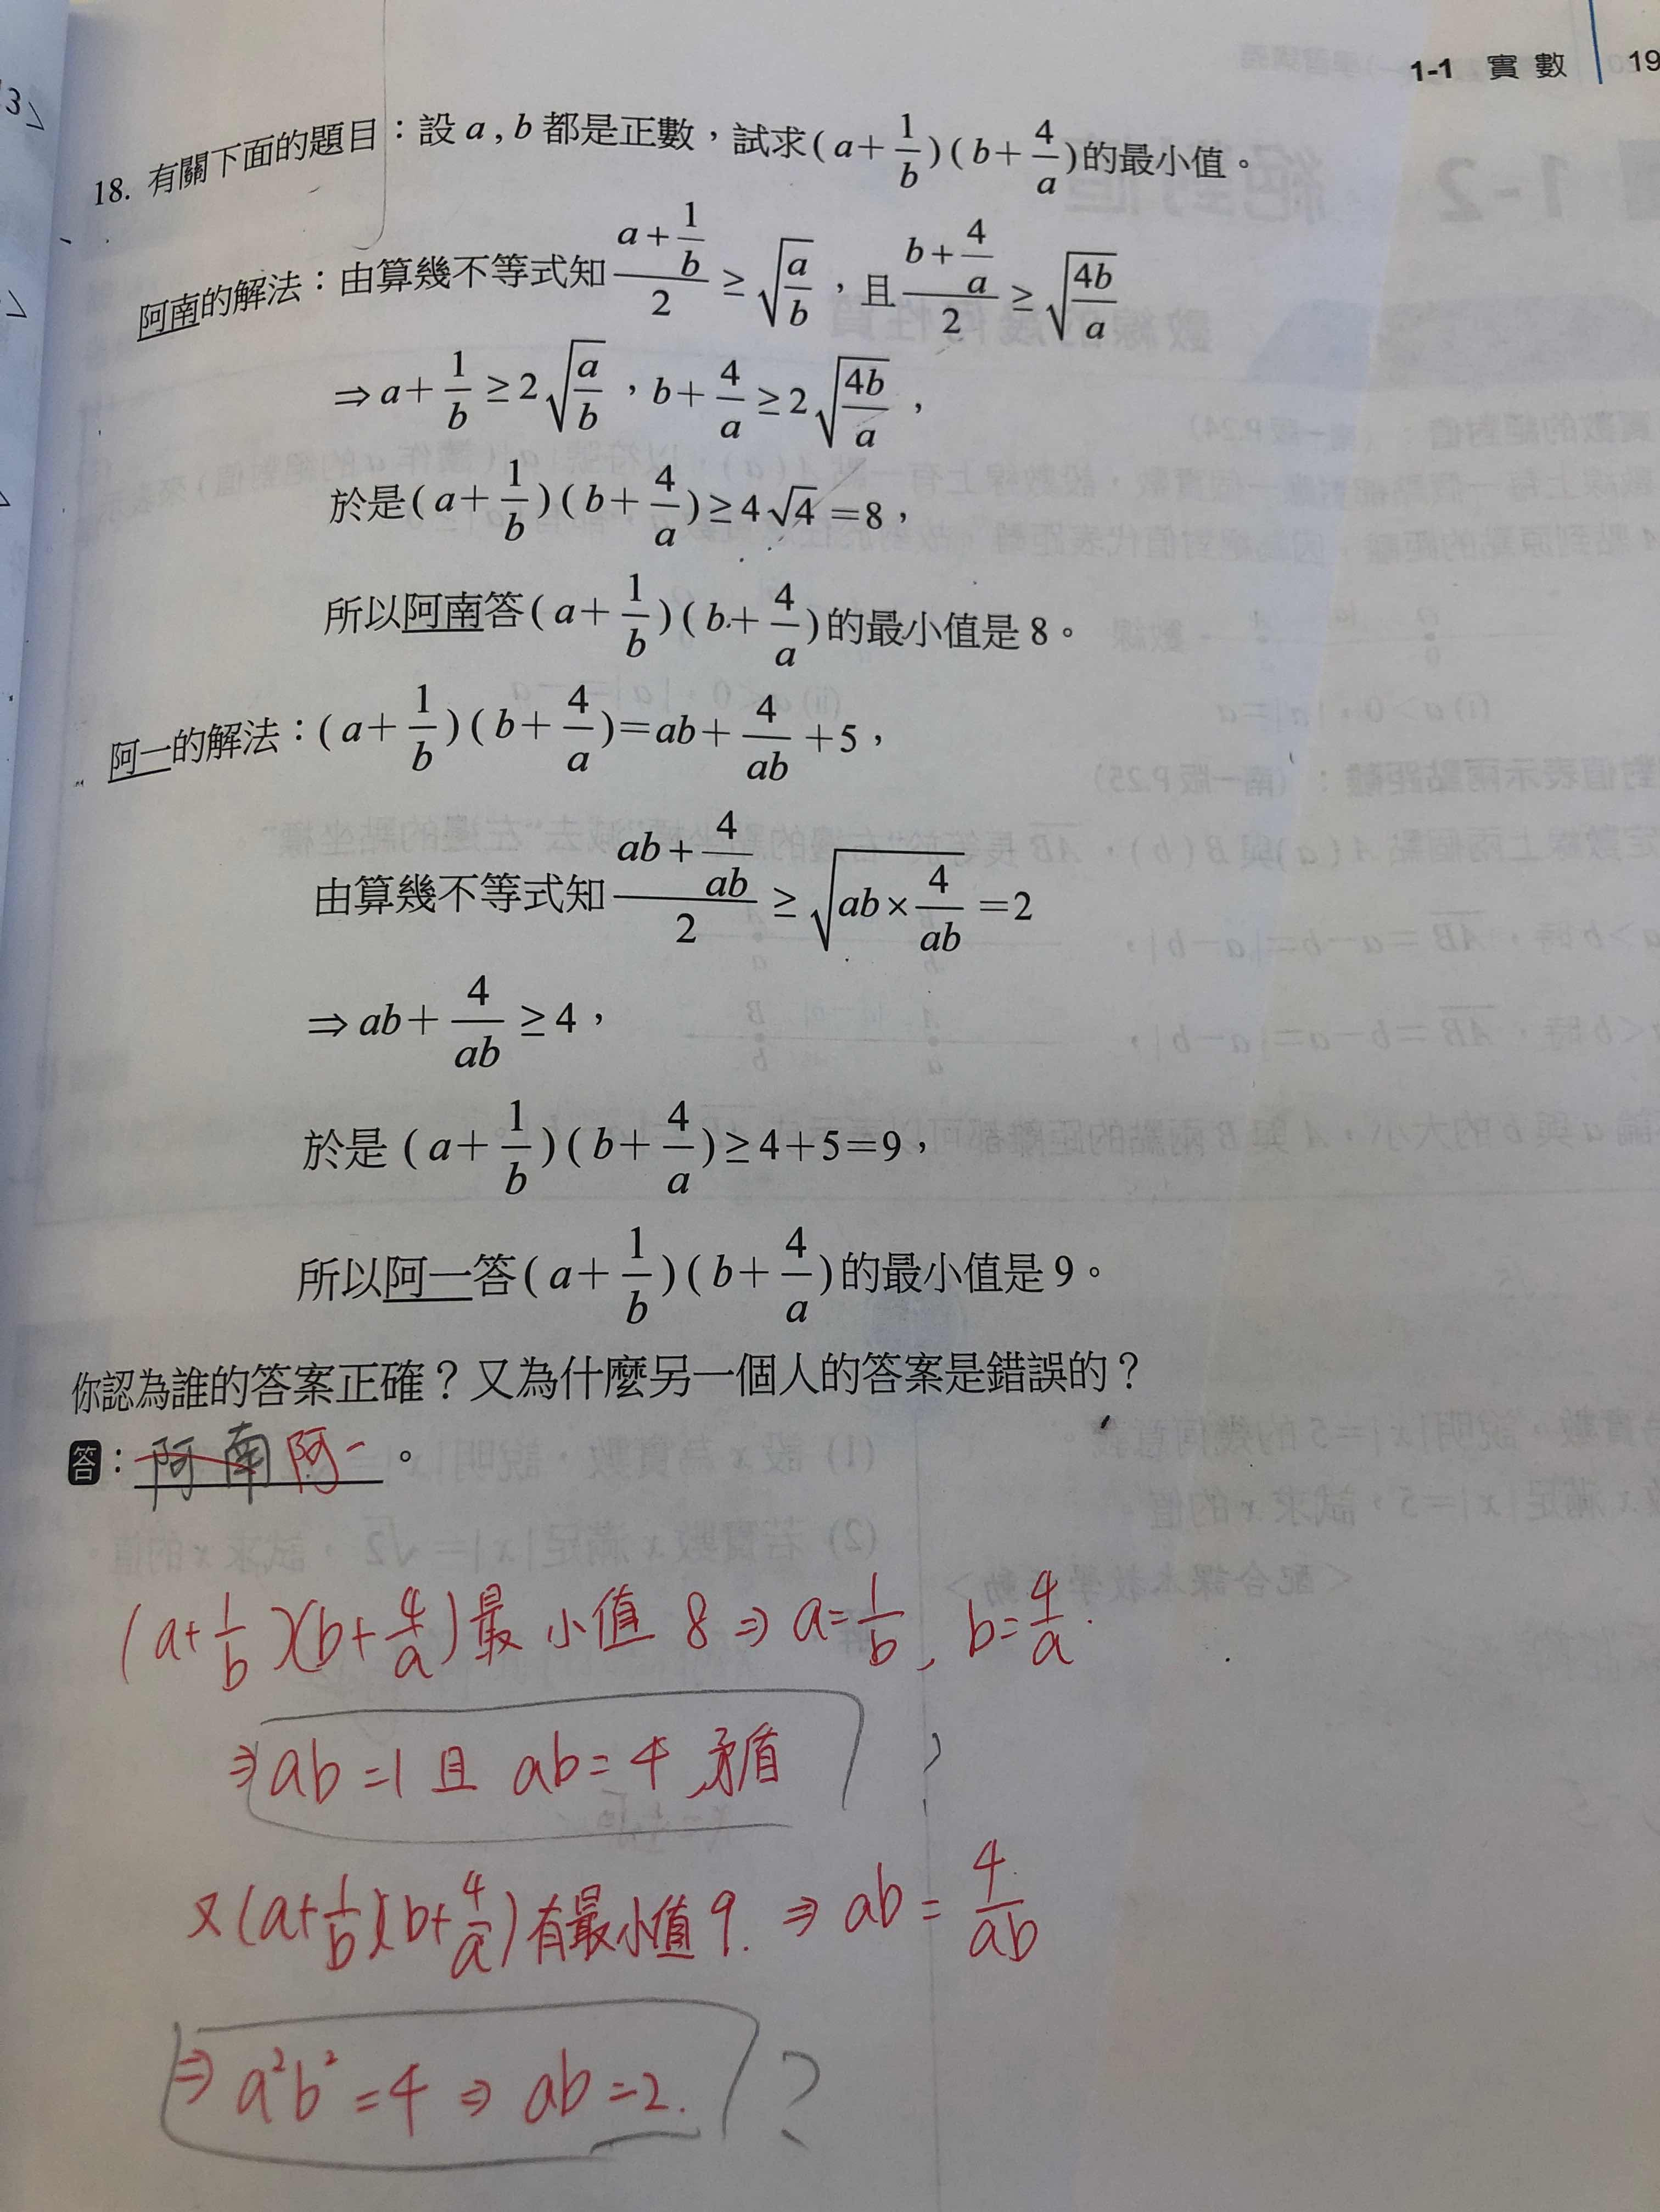 1-1 實數 19
18. 有關下面的題目：設 a , b 都是正數，試求(a+1/b)(b+4/a)的最小值。
阿南的解法：由算幾不等式知 (a+1/b)/2 ≥ √(a/b)，且 (b+4/a)/2 ≥ √(4b/a)
⇒ a+1/b ≥ 2√(a/b)，b+4/a ≥ 2√(4b/a)，
於是(a+1/b)(b+4/a) ≥ 4√4 =8，
所以阿南答(a+1/b)(b+4/a)的最小值是 8。
阿一的解法：(a+1/b)(b+4/a)=ab+4/ab+5，
由算幾不等式知 (ab+4/ab)/2 ≥ √(ab×4/ab) =2
⇒ ab+4/ab ≥ 4，
於是 (a+1/b)(b+4/a) ≥ 4+5=9，
所以阿一答(a+1/b)(b+4/a)的最小值是 9。
你認為誰的答案正確？又為什麼另一個人的答案是錯誤的？
答：阿南 阿一。
(a+1/b)(b+4/a)最小值 8 ⇒ a=1/b, b=4/a.
⇒ ab=1 且 ab=4 矛盾
又(a+1/b)(b+4/a)有最小值 9. ⇒ ab = 4/ab
⇒ a²b²=4 ⇒ ab=2. ?